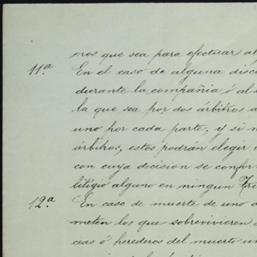 nos que sea para efectuar al
11ª En el caso de alguna disc
durante la compañia ó al
la que sea por dos árbitros
uno por cada parte, y si n
árbitros, estos podrán elegir
con cuya decision se confor
litigio alguno en ningun Tri
12ª En caso de muerte de uno
meten los que sobrevivieren
cias ó herederos del muerto un